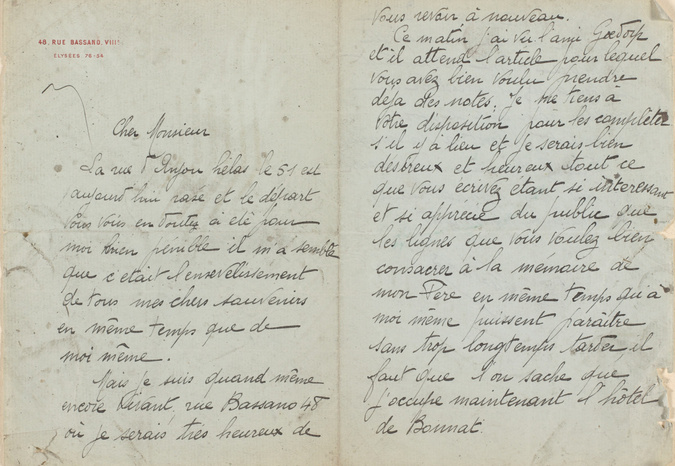 48, RUE BASSANO, VIIIe
ÉLYSÉES 76-54
Cher Monsieur
La rue d'Anjou hélas le 51 est
aujourd'hui rasé et le départ
vous vous en doutez a été pour
moi bien pénible il m'a semblé
que c'était l'ensevelissement
de tous mes chers souvenirs
en même temps que de
moi même.
Mais je suis quand même
encore vivant, rue Bassano 48
où je serais très heureux de
vous revoir à nouveau.
Ce matin j'ai vu l'ami
et il attend l'article pour lequel
vous avez bien voulu prendre
déjà des notes. Je me tiens à
votre disposition pour les compléter
s'il y a lieu et je serais bien
desireux et heureux tout ce
que vous écrivez étant si intéressant
et si apprécié du public que
les lignes que vous voulez bien
consacrer à la mémoire de
mon Père en même temps qu'à
moi même puissent paraître
sans trop longtemps tarder, il
faut que l'on sache que
j'occupe maintenant l'hôtel
de Bonnat.